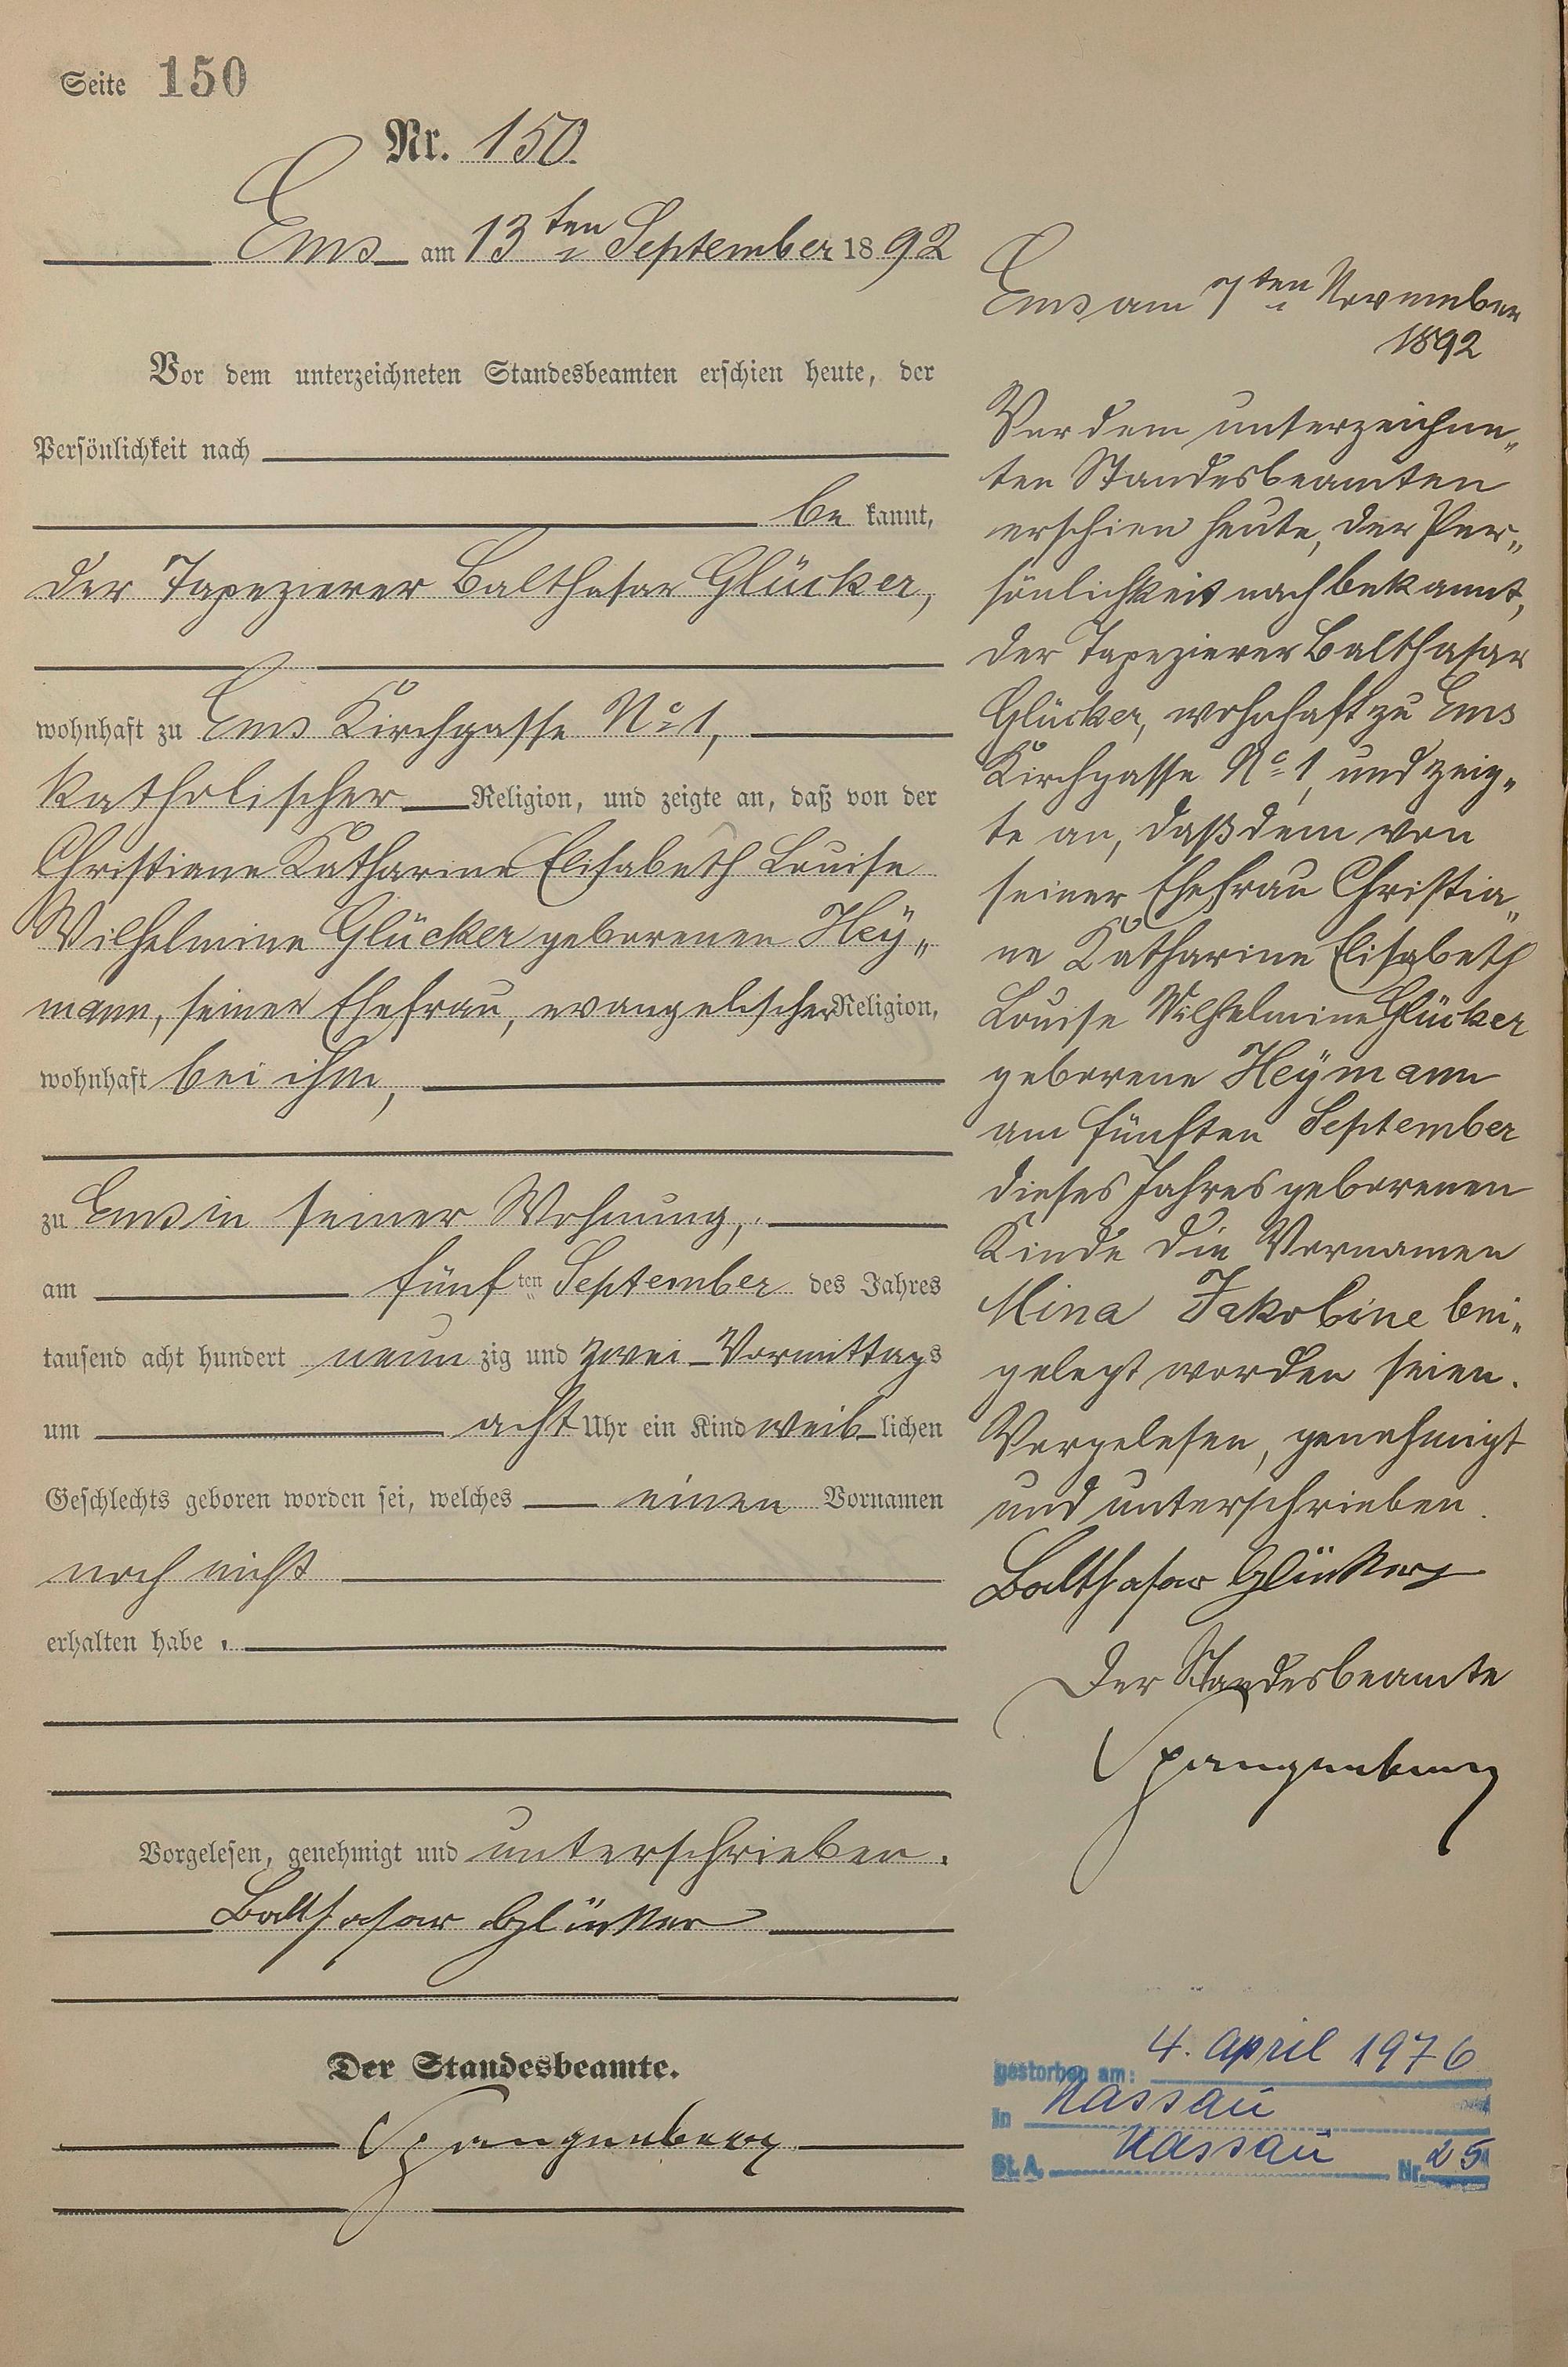 Seite 150
Nr. 150.
Ems am 13ten September 1892
Vor dem unterzeichneten Standesbeamten erschien heute, der
Persönlichkeit nach
be kannt,
der Tapezierer Balthasar Glücker,
wohnhaft zu Ems Kirchgasse No 1,
katholischer Religion, und zeigte an, daß von der
Christiane Katharine Elisabeth Louise
Wilhelmine Glücker geborenen Hey„
mann, seiner Ehefrau, evangelischer Religion,
wohnhaft bei ihm,
zu Ems in seiner Wohnung,
am fünf ten September des Jahres
tausend acht hundert neun zig und zwei Vormittags
um acht Uhr ein Kind weib lichen
Geschlechts geboren worden sei, welches einen Vornamen
noch nicht
erhalten habe.
Vorgelesen, genehmigt und unterschrieben.
Balthasar Glücker
Der Standesbeamte.
Spangenberg
Ems am 7ten November
1892
Vor dem unterzeichne„
ten Standesbeamten
erschien heute, der Per„
sönlichkeit nach bekannt,
der Tapezierer Balthasar
Glücker, wohnhaft zu Ems
Kirchgasse No 1, und zeig„
te an, daß dem von
seiner Ehefrau Christia„
ne Katharine Elisabeth
Louise Wilhelmine Glücker
geborene Heymann
am fünften September
dieses Jahres geborenen
Kinde die Vornamen
Mina Jakobine bei„
gelegt worden seien.
Vorgelesen, genehmigt
und unterschrieben.
Balthasar Glücker
Der Standesbeamte
Spangenberg
gestorben am: 4. April 1976
in Nassau
St. A. Nassau Nr. 25